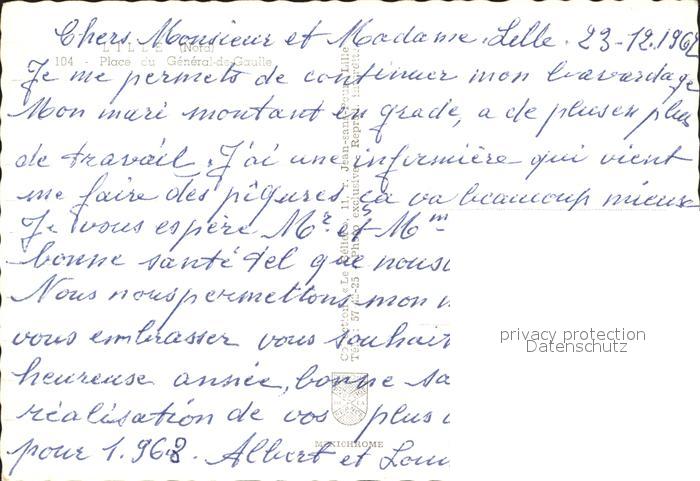 Chers Monsieur et Madame. Lille. 23-12.196
LILLE (Nord)
104 - Place du Général-de-Gaulle
Je me permets de continuer mon bavardage
Mon mari montant en grade, a de plus en plus
de travail. J'ai une infirmière qui vient
me faire des piqures, ça va beaucoup mieux
Je vous espère Mr et Mm
bonne santé tel que nous
Nous nous permettons, mon
vous embrasser vous souhait
heureuse année, bonne sa
réalisation de vos plus
pour 1.968. Albert et Lou
Collection « Le 11, r. Jean-sans-Peur, Lille
Tél. : 57 -25 - Photo exclusive. Reprod. interdite
MEXICHROME
privacy protection
Datenschutz